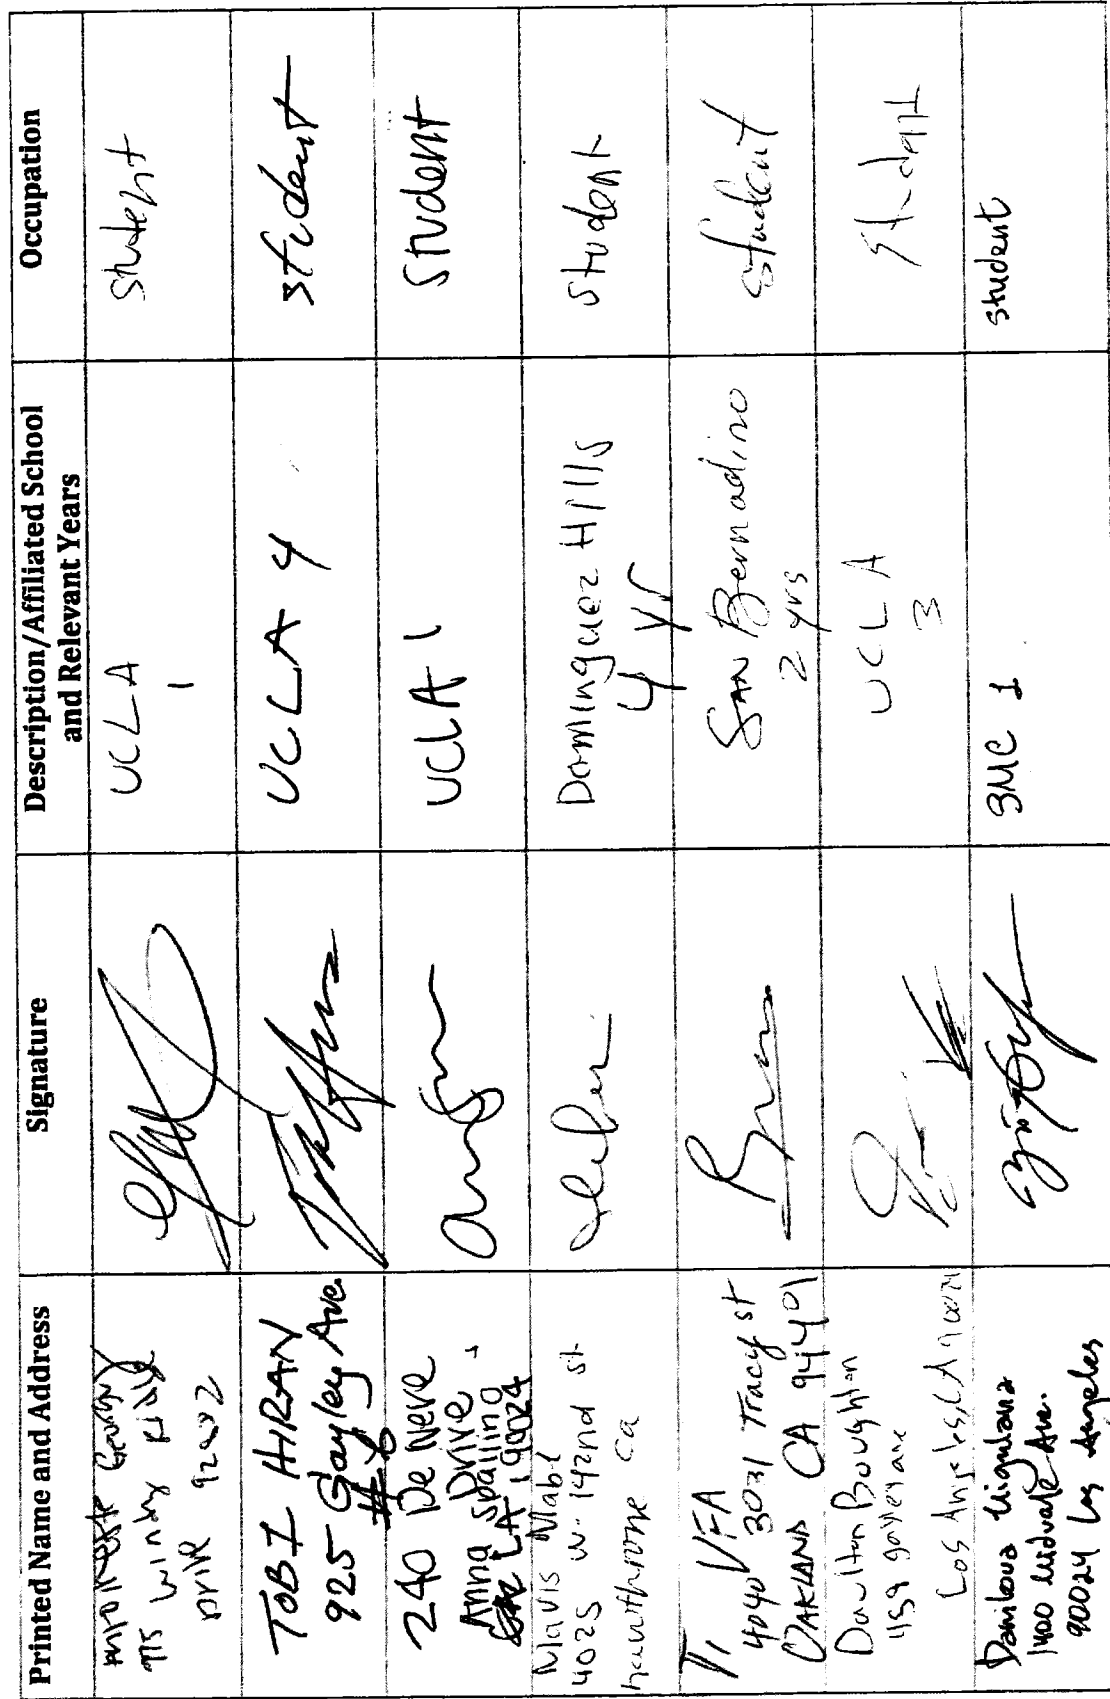 Printed Name and Address
Signature
Description/Affiliated School
and Relevant Years
Occupation
Windy Ridge
Drive
UCLA
1
Student
TOBI HIRAN
925 Gayley Ave.
#6
UCLA 4
student
240 De Neve
Drive
Anna Spalino
LA 90024
UCLA 1
Student
Mavis Mabel
4025 w. 142nd st
hawthrone ca
Dominguez Hills
4 yr
Student
4040 VFA
3031 Tracy st
OAKLAND CA 94401
San Bernadino
2 yrs
Student
Daulton Boughton
459
Los Angeles, CA
UCLA
3
Student
Danilova
1400 Midvale Ave.
90024 Los Angeles
SMC 1
student